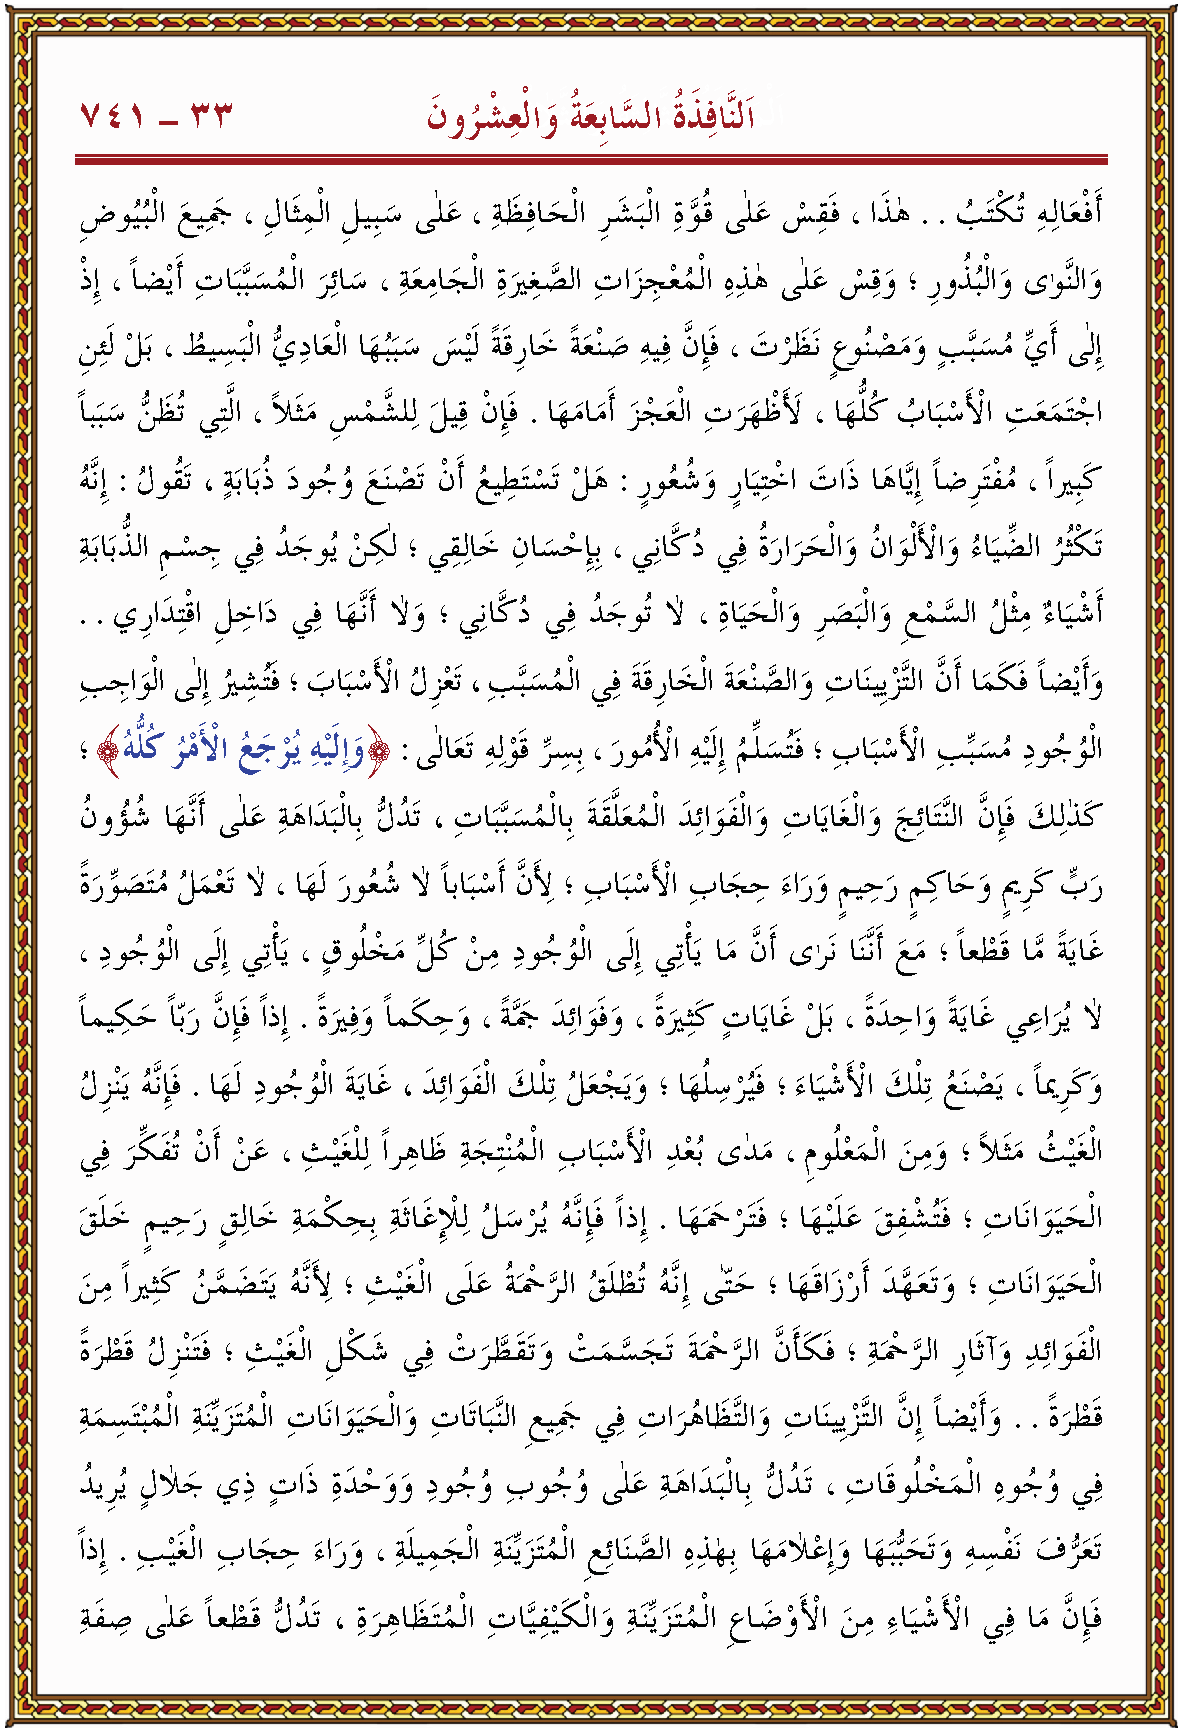 اَلنَّافِذَةُ السَّابِعَةُ وَالْعِشْرُونَ ٣٣ – ٧٤١
أَفْعَالِهِ تُكْتَبُ . . هٰذَا ، فَقِسْ عَلٰى قُوَّةِ الْبَشَرِ الْحَافِظَةِ ، عَلٰى سَبِيلِ الْمِثَالِ ، جَمِيعَ الْبُيُوضِ
وَالنَّوٰى وَالْبُذُورِ ؛ وَقِسْ عَلٰى هٰذِهِ الْمُعْجِزَاتِ الصَّغِيرَةِ الْجَامِعَةِ ، سَائِرَ الْمُسَبَّبَاتِ أَيْضاً ، إِذْ
إِلٰى أَيِّ مُسَبَّبٍ وَمَصْنُوعٍ نَظَرْتَ ، فَإِنَّ فِيهِ صَنْعَةً خَارِقَةً لَيْسَ سَبَبُهَا الْعَادِيُّ الْبَسِيطُ ، بَلْ لَئِنِ
اجْتَمَعَتِ الْأَسْبَابُ كُلُّهَا ، لَأَظْهَرَتِ الْعَجْزَ أَمَامَهَا . فَإِنْ قِيلَ لِلشَّمْسِ مَثَلاً ، الَّتِي تُظَنُّ سَبَباً
كَبِيراً ، مُفْتَرِضاً إِيَّاهَا ذَاتَ اخْتِيَارٍ وَشُعُورٍ : هَلْ تَسْتَطِيعُ أَنْ تَصْنَعَ وُجُودَ ذُبَابَةٍ ، تَقُولُ : إِنَّهُ
تَكْثُرُ الضِّيَاءُ وَالْأَلْوَانُ وَالْحَرَارَةُ فِي دُكَّانِي ، بِإِحْسَانِ خَالِقِي ؛ لٰكِنْ يُوجَدُ فِي جِسْمِ الذُّبَابَةِ
أَشْيَاءٌ مِثْلُ السَّمْعِ وَالْبَصَرِ وَالْحَيَاةِ ، لاٰ تُوجَدُ فِي دُكَّانِي ؛ وَلاٰ أَنَّهَا فِي دَاخِلِ اقْتِدَارِي . .
وَأَيْضاً فَكَمَا أَنَّ التَّزْيِينَاتِ وَالصَّنْعَةَ الْخَارِقَةَ فِي الْمُسَبَّبِ ، تَعْزِلُ الْأَسْبَابَ ؛ فَتُشِيرُ إِلٰى الْوَاجِبِ
الْوُجُودِ مُسَبِّبِ الْأَسْبَابِ ؛ فَتُسَلِّمُ إِلَيْهِ الْأُمُورَ ، بِسِرِّ قَوْلِهِ تَعَالٰى : ﴿وَإِلَيْهِ يُرْجَعُ الْأَمْرُ كُلُّهُ﴾ ؛
كَذٰلِكَ فَإِنَّ النَّتَائِجَ وَالْغَايَاتِ وَالْفَوَائِدَ الْمُعَلَّقَةَ بِالْمُسَبَّبَاتِ ، تَدُلُّ بِالْبَدَاهَةِ عَلٰى أَنَّهَا شُؤُونُ
رَبٍّ كَرِيمٍ وَحَاكِمٍ رَحِيمٍ وَرَاءَ حِجَابِ الْأَسْبَابِ ؛ لِأَنَّ أَسْبَاباً لاٰ شُعُورَ لَهَا ، لاٰ تَعْمَلُ مُتَصَوِّرَةً
غَايَةً مَّا قَطْعاً ؛ مَعَ أَنَّنَا نَرٰى أَنَّ مَا يَأْتِي إِلَى الْوُجُودِ مِنْ كُلِّ مَخْلُوقٍ ، يَأْتِي إِلَى الْوُجُودِ ،
لاٰ يُرَاعِي غَايَةً وَاحِدَةً ، بَلْ غَايَاتٍ كَثِيرَةً ، وَفَوَائِدَ جَمَّةً ، وَحِكَماً وَفِيرَةً . إِذاً فَإِنَّ رَبّاً حَكِيماً
وَكَرِيماً ، يَصْنَعُ تِلْكَ الْأَشْيَاءَ ؛ فَيُرْسِلُهَا ؛ وَيَجْعَلُ تِلْكَ الْفَوَائِدَ ، غَايَةَ الْوُجُودِ لَهَا . فَإِنَّهُ يَنْزِلُ
الْغَيْثُ مَثَلاً ؛ وَمِنَ الْمَعْلُومِ ، مَدٰى بُعْدِ الْأَسْبَابِ الْمُنْتِجَةِ ظَاهِراً لِلْغَيْثِ ، عَنْ أَنْ تُفَكِّرَ فِي
الْحَيَوَانَاتِ ؛ فَتُشْفِقَ عَلَيْهَا ؛ فَتَرْحَمَهَا . إِذاً فَإِنَّهُ يُرْسَلُ لِلْإِغَاثَةِ بِحِكْمَةِ خَالِقٍ رَحِيمٍ خَلَقَ
الْحَيَوَانَاتِ ؛ وَتَعَهَّدَ أَرْزَاقَهَا ؛ حَتّٰى إِنَّهُ تُطْلَقُ الرَّحْمَةُ عَلَى الْغَيْثِ ؛ لِأَنَّهُ يَتَضَمَّنُ كَثِيراً مِنَ
الْفَوَائِدِ وَآثَارِ الرَّحْمَةِ ؛ فَكَأَنَّ الرَّحْمَةَ تَجَسَّمَتْ وَتَقَطَّرَتْ فِي شَكْلِ الْغَيْثِ ؛ فَتَنْزِلُ قَطْرَةً
قَطْرَةً . . وَأَيْضاً إِنَّ التَّزْيِينَاتِ وَالتَّظَاهُرَاتِ فِي جَمِيعِ النَّبَاتَاتِ وَالْحَيَوَانَاتِ الْمُتَزَيِّنَةِ الْمُبْتَسِمَةِ
فِي وُجُوهِ الْمَخْلُوقَاتِ ، تَدُلُّ بِالْبَدَاهَةِ عَلٰى وُجُوبِ وُجُودِ وَوَحْدَةِ ذَاتٍ ذِي جَلاٰلٍ يُرِيدُ
تَعَرُّفَ نَفْسِهِ وَتَحَبُّبَهَا وَإِعْلاٰمَهَا بِهٰذِهِ الصَّنَائِعِ الْمُتَزَيِّنَةِ الْجَمِيلَةِ ، وَرَاءَ حِجَابِ الْغَيْبِ . إِذاً
فَإِنَّ مَا فِي الْأَشْيَاءِ مِنَ الْأَوْضَاعِ الْمُتَزَيِّنَةِ وَالْكَيْفِيَّاتِ الْمُتَظَاهِرَةِ ، تَدُلُّ قَطْعاً عَلٰى صِفَةِ